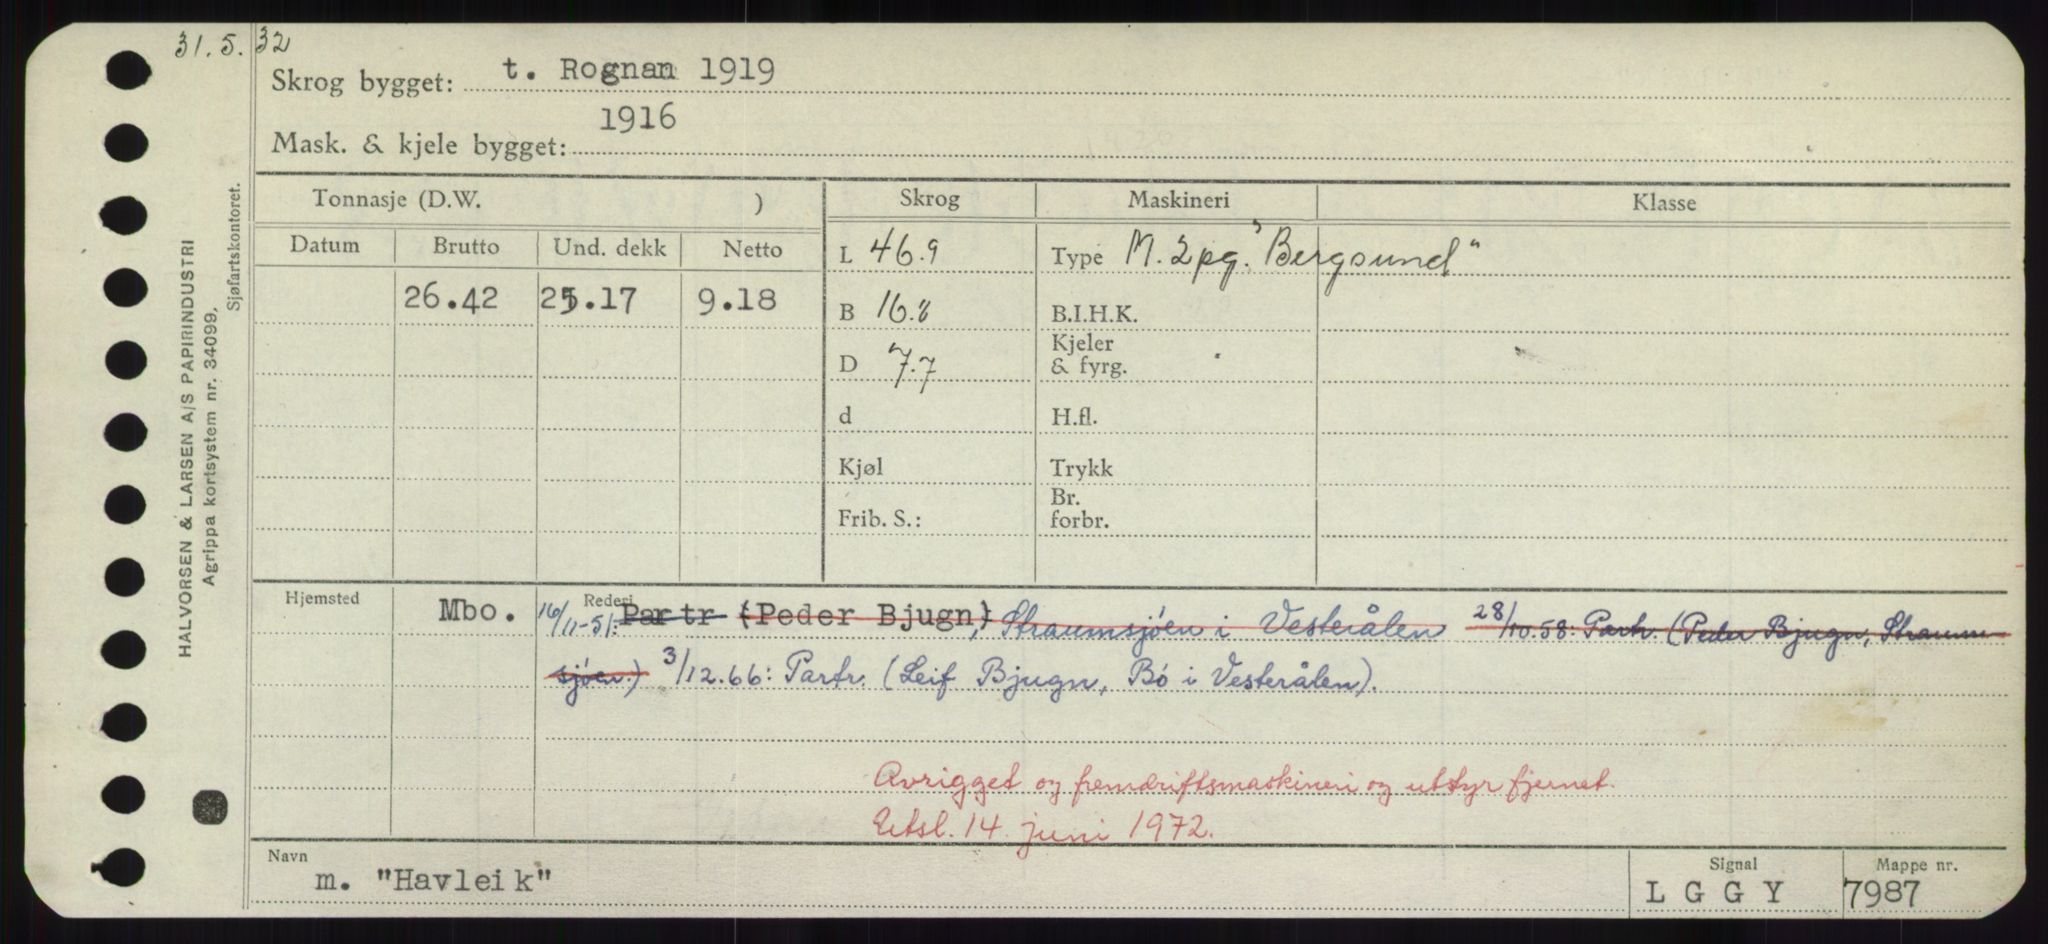 31.5.32
Skrog bygget: t. Rognan 1919
Mask. & kjele bygget: 1916
Tonnasje (D.W. ) Skrog Maskineri Klasse
Datum Brutto Und. dekk Netto L 46.9 Type M. 2 pg. "Bergsund"
26.42 25.17 9.18 B 16.8 B.I.H.K.
D 7.7 Kjeler & fyrg.
d H.fl.
Kjøl Trykk
Frib. S.: Br. forbr.
Hjemsted Mbo. Rederi 16/11-51: Partr (Peder Bjugn), Straumsjøen i Vesterålen 28/10.58: Partr. (Peder Bjugn, Straum-
sjøen.) 3/12.66: Partr. (Leif Bjugn, Bö i Vesterålen).
Avrigget og fremdriftsmaskineri og utstyr fjernet.
Utsl. 14. juni 1972.
Navn m. "Havleik" Signal LGGY Mappe nr. 7987
HALVORSEN & LARSEN A/S PAPIRINDUSTRI
Agrippa kortsystem nr. 34099.
Sjøfartskontoret.